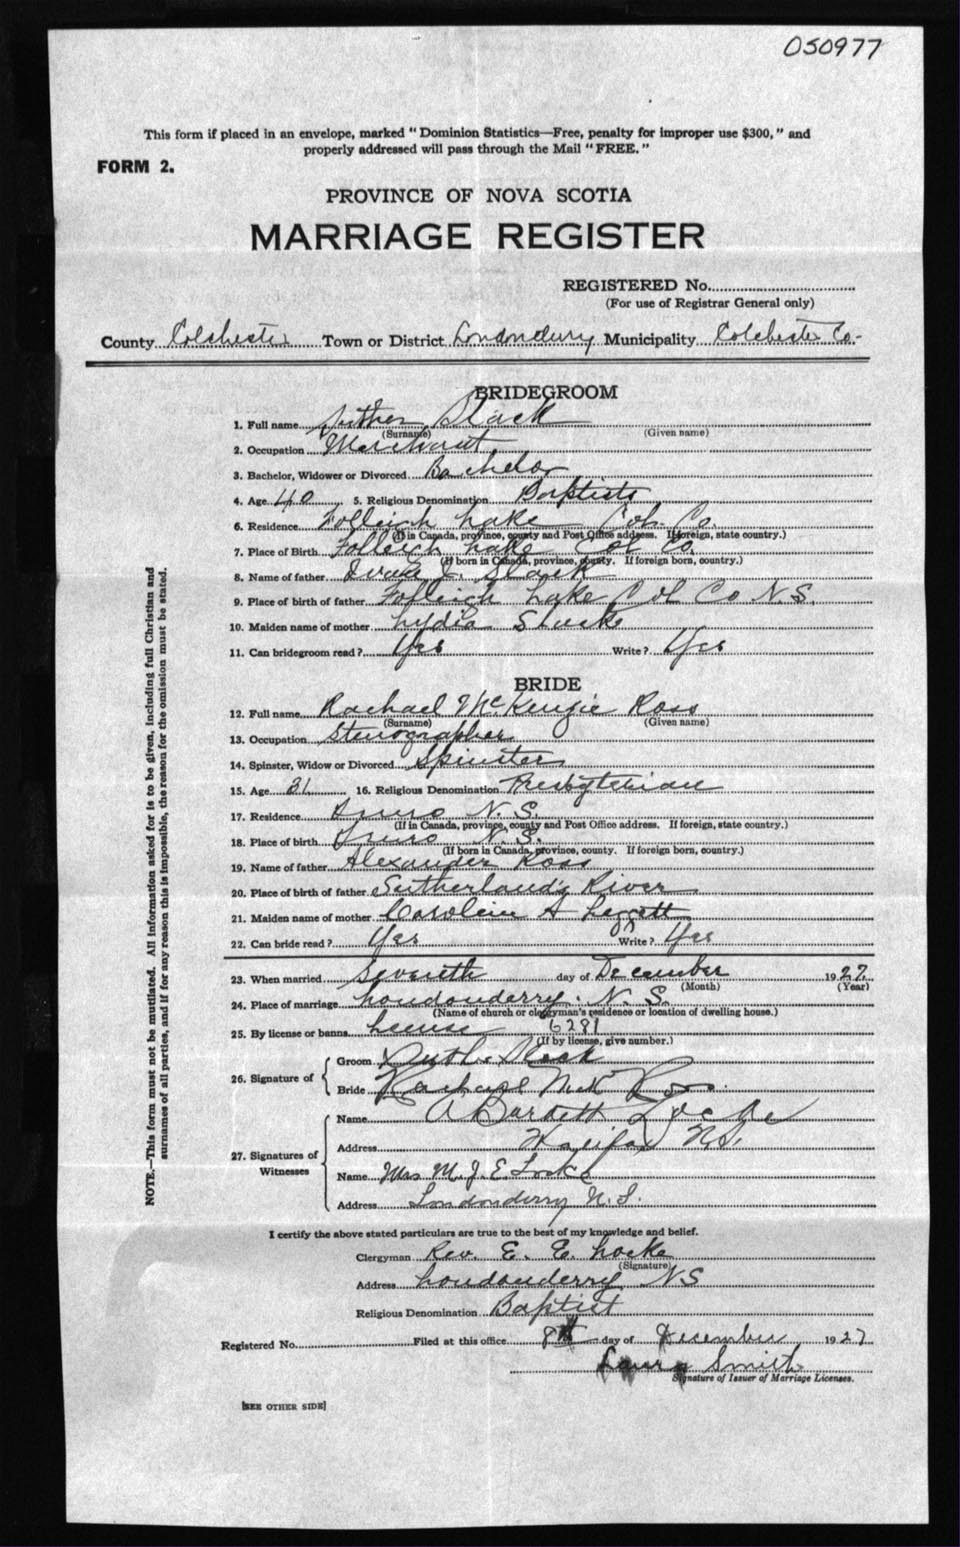 050977
This form if placed in an envelope, marked "Dominion Statistics—Free, penalty for improper use $300," and
properly addressed will pass through the Mail "FREE."
FORM 2.
PROVINCE OF NOVA SCOTIA
MARRIAGE REGISTER
REGISTERED No.
(For use of Registrar General only)
County Colchester Town or District Londonderry Municipality Colchester Co.
BRIDEGROOM
1. Full name Luther Slack
(Surname) (Given name)
2. Occupation Merchant
3. Bachelor, Widower or Divorced Bachelor
4. Age 40 5. Religious Denomination Baptists
6. Residence Folleigh Lake Col. Co.
(If in Canada, province, county and Post Office address. If foreign, state country.)
7. Place of Birth Folleigh Lake Col Co.
(If born in Canada, province, county. If foreign born, country.)
8. Name of father Slack
9. Place of birth of father Folleigh Lake Col Co N.S.
10. Maiden name of mother Lydia
11. Can bridegroom read? Yes Write? Yes
BRIDE
12. Full name Rachael McKenzie Ross
(Surname) (Given name)
13. Occupation Stenographer
14. Spinster, Widow or Divorced Spinster
15. Age 31 16. Religious Denomination Presbyterian
17. Residence Truro N.S.
(If in Canada, province, county and Post Office address. If foreign, state country.)
18. Place of birth Truro N.S.
(If born in Canada, province, county. If foreign born, country.)
19. Name of father Alexander Ross
20. Place of birth of father Sutherland's River
21. Maiden name of mother A Leggett
22. Can bride read? Yes Write? Yes
23. When married seventh day of December 1927
(Month) (Year)
24. Place of marriage Londonderry. N.S.
(Name of church or clergyman's residence or location of dwelling house.)
25. By license or banns License 6281
(If by license, give number.)
26. Signature of
Groom Luther Slack
Bride Rachael McK Ross
27. Signatures of Witnesses
Name A Barnett Locke
Address Halifax N.S.
Name Mrs M. J. E. Locke
Address Londonderry N.S.
I certify the above stated particulars are true to the best of my knowledge and belief.
Clergyman Rev. E. E. Locke
(Signature)
Address Londonderry NS
Religious Denomination Baptist
Registered No. Filed at this office 8th day of December 1927
Laura Smith
Signature of Issuer of Marriage Licenses.
[SEE OTHER SIDE]
NOTE.—This form must not be mutilated. All information asked for is to be given, including full Christian and
surnames of all parties, and if for any reason this is impossible, the reason for the omission must be stated.